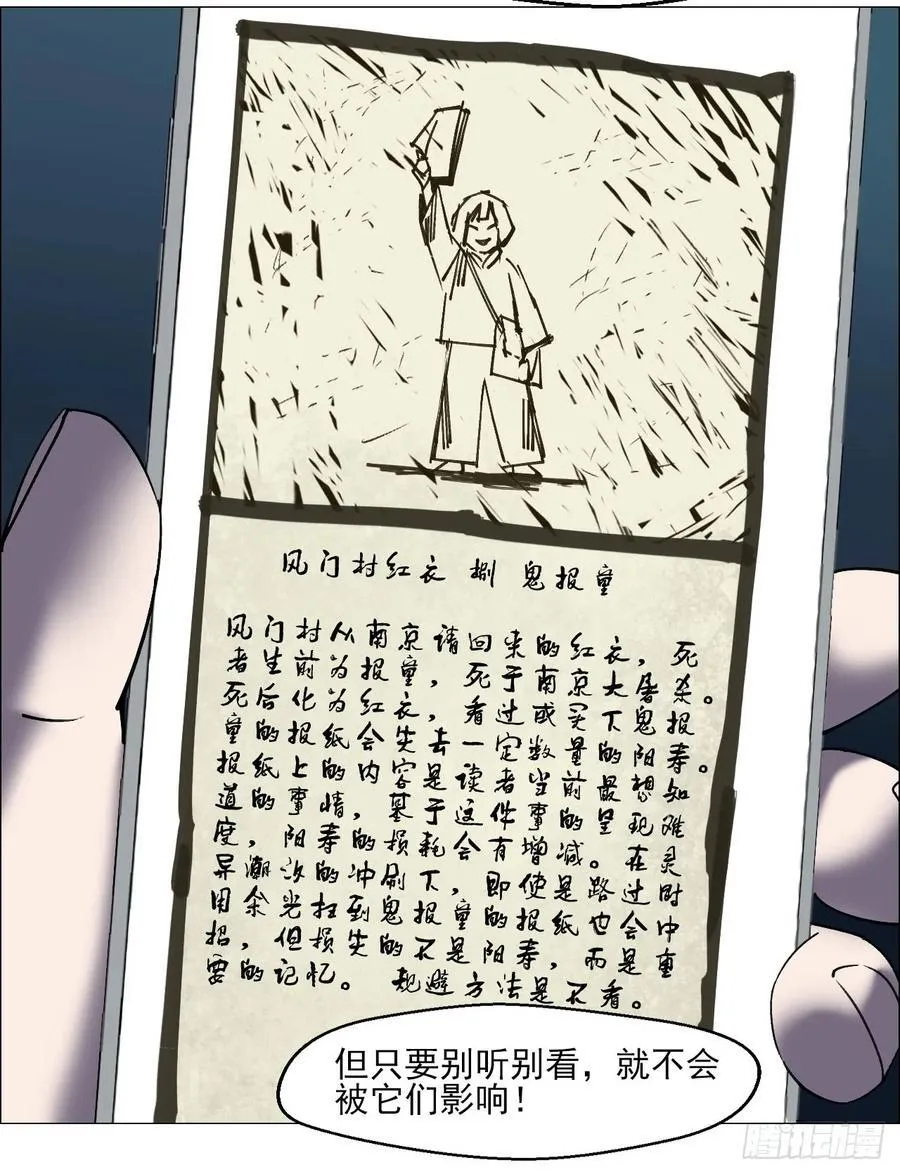 风门村红衣 捌 鬼报童
风门村从南京请回来的红衣，死
者生前为报童，死于南京大屠杀。
死后化为红衣，看过或买下鬼报
童的报纸会失去一定数量的阳寿。
报纸上的内容是读者当前最想知
道的事情，基于这件事的呈现难
度，阳寿的损耗会有增减。在灵
异潮汐的冲刷下，即使是路过时
用余光扫到鬼报童的报纸也会中
招，但损失的不是阳寿，而是重
要的记忆。 规避方法是不看。
但只要别听别看，就不会
被它们影响！
腾讯动漫